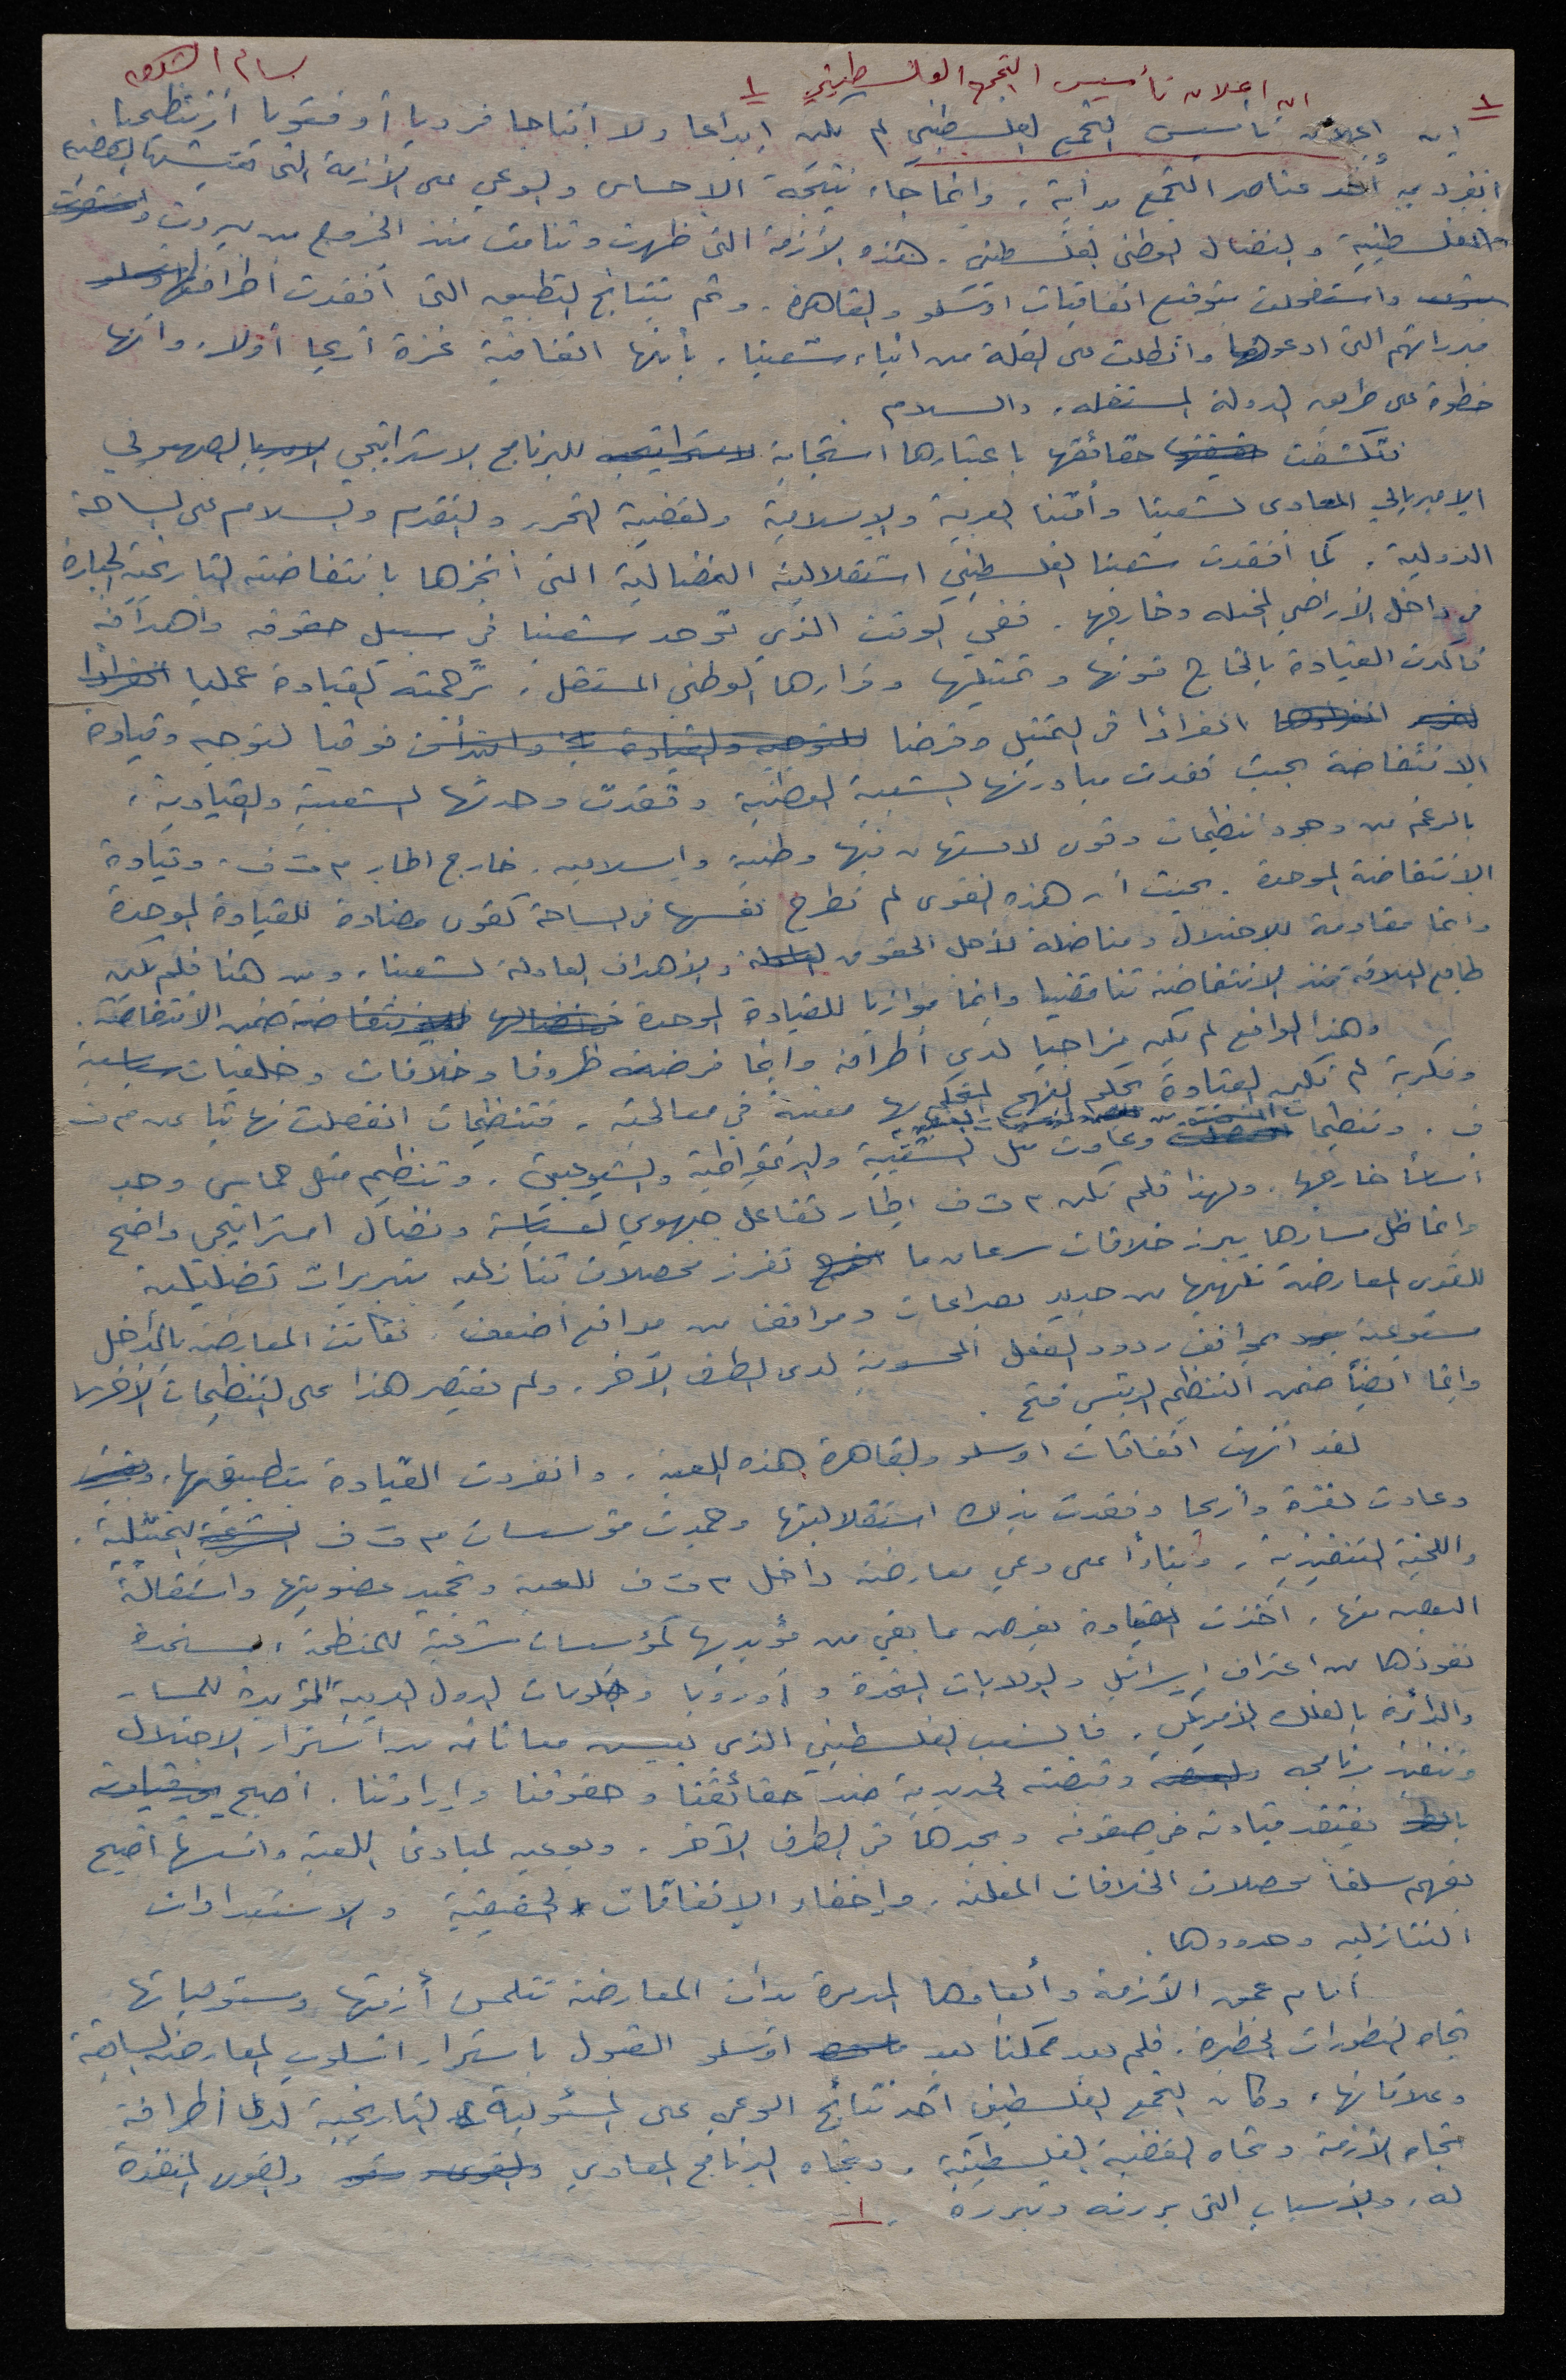 بسام الشكعه
١ ان اعلان تأسيس التجمع الفلسطيني ١
ان إعلان تأسيس التجمع الفلسطيني لم يكن ابداعا ولا انتاجا فرديا أو فئويا أو تنظيميا
انفرد به أحد عناصر التجمع بداية، وانما جاء نتيجة الاحساس والوعي على الأزمة التي تعيشها القضية
الفلسطينية والنضال الوطني الفلسطيني. هذه الأزمة التي ظهرت وتنامت منذ الخروج من بيروت
واستفحلت بتوقيع اتفاقيات اوسلو والقاهرة. وتم بنتائج التطبيق التي أفقدت أطرافها
مبرراتهم التي ادعوها وانطلت على القلة من ابناء شعبنا، بأنها اتفاقية غزة أريحا أولا، وانها
خطوة على طريق الدولة المستقله، والسلام
فتكشفت حقائقها باعتبارها استجابة للبرنامج الاستراتيجي الصهيوني
الإمبريالي المعادي لشعبنا وأمتنا العربية والإسلامية ولقضية التحرر والتقدم والسلام على الساحة
الدولية، كما أفقدت شعبنا الفلسطيني استقلاليته النضالية التي أنجزها بانتفاضته التاريخية الجبارة
في داخل الأراضي المحتله وخارجها. ففي الوقت الذي توحد شعبنا في سبيل حقوقه واهدافه
فأكدت القيادة بالحاح قوتها وتمثيلها وقرارها الوطني المستقل، ترجمته القيادة عمليا
انفرادا في التمثيل وفرضا فوقيا لتوجيه وقيادة
الانتفاضة بحيث فقدت مبادرتها الشعبية الوطنية وفقدت وحدتها الشعبية والقيادية،
بالرغم من وجود تنظيمات وقوى لا يستهان فيها وطنية وإسلامية، خارج اطار م ت ف، وقيادة
الانتفاضة الموحدة. بحيث أن هذه القوى لم تطرح نفسها في الساحة كقوى مضادة للقيادة الموحدة
وانما مقاومة للاحتلال ومناضلة لأجل الحقوق والأهداف العادلة لشعبنا، ومن هنا فلم يكن
طابع العلاقة منذ الانتفاضة تناقضيا وانما موازيا للقيادة الموحدة ضمن الانتفاضة.
وهذا الواقع لم يكن مزاجيا لدى أطرافه وانما فرضته ظروفا وخلافات وخلفيات سياسية
وفكرية لم تكن القيادة بحكم النهج المتحكم بها معنية في معالجته، فتنظيمات انفصلت نهائيا عن م ت
ف، وتنظيمات وعادت مثل الشعبية والديمقراطية والشيوعيين، وتنظيم مثل حماس وجد
أساسا خارجها، ولهذا فلم تكن م ت ف إطار تفاعل جبهوي لسياسة ونضال استراتيجي واضح
وانما ظل مسارها يبرز خلافات سرعان ما تفرز محصلات تنازليه بتبريرات تضليلية
للقوى المعارضة تلهيها من جديد بصراعات ومواقف من مواقع أضعف، فكانت المعارضة بالداخل
مستوعبة بمواقف ردود الفعل المحسوبة لدى الطرف الآخر، ولم يقتصر هذا على التنظيمات الأخرى
وانما ايضا ضمن التنظيم الرئيسي فتح.
لقد أنهت اتفاقات اوسلو والقاهرة هذه اللعبة، وانفردت القيادة بتطبيقها،
وعادت لغزة وأريحا وفقدت بذلك استقلاليتها وجمدت مؤسسات م ت ف التمثيلية،
واللجنة التنفيذية، وبناءا على وعي معارضة داخل م ت ف للعبة وتجميد عضويتها واستقالة
البعض منها، أخذت القيادة بفرض ما بقي من مؤيديها كمؤسسات شرعية للمنظمة، مستمدة
نفوذها من اعتراف إسرائيل والولايات المتحدة وأوروبا وحكومات الدول العربية المؤيدة للمسار
والدائرة بالفلك الأمريكي، فالشعب الفلسطيني الذي يعيش معاناته من استمرار الاحتلال
وتنفيذ برنامجه وقبضته الحديدية ضد حقائقنا وحقوقنا وإرادتنا. أصبح
يفتقد قيادته في صفوفه ويجدها في الطرف الآخر، وبوعيه لمبادئ اللعبة واسسها أصبح
يفهم سلفا محصلات الخلافات المعلنه، وإخفاء الإتفاقات الحقيقية والاستعدادات
التنازليه وحدودها.
أمام عمق الأزمة وأبعادها المدمرة بدأت المعارضة تتلمس أزمتها ومسئولياتها
تجاه التطورات الخطيرة، فلم يعد ممكنا بعد اوسلو القبول باستمرار اسلوب المعارضة السابقة
وعلاقاتها، وكان التجمع الفلسطيني أحد نتائج الوعي على المسئولية التاريخية لدى أطرافه
تجاه الأزمة وتجاه القضية الفلسطينية، وتجاه البرنامج المعادي والقوى المنفذة
له، والأسباب التي بررته وتبرره. ١